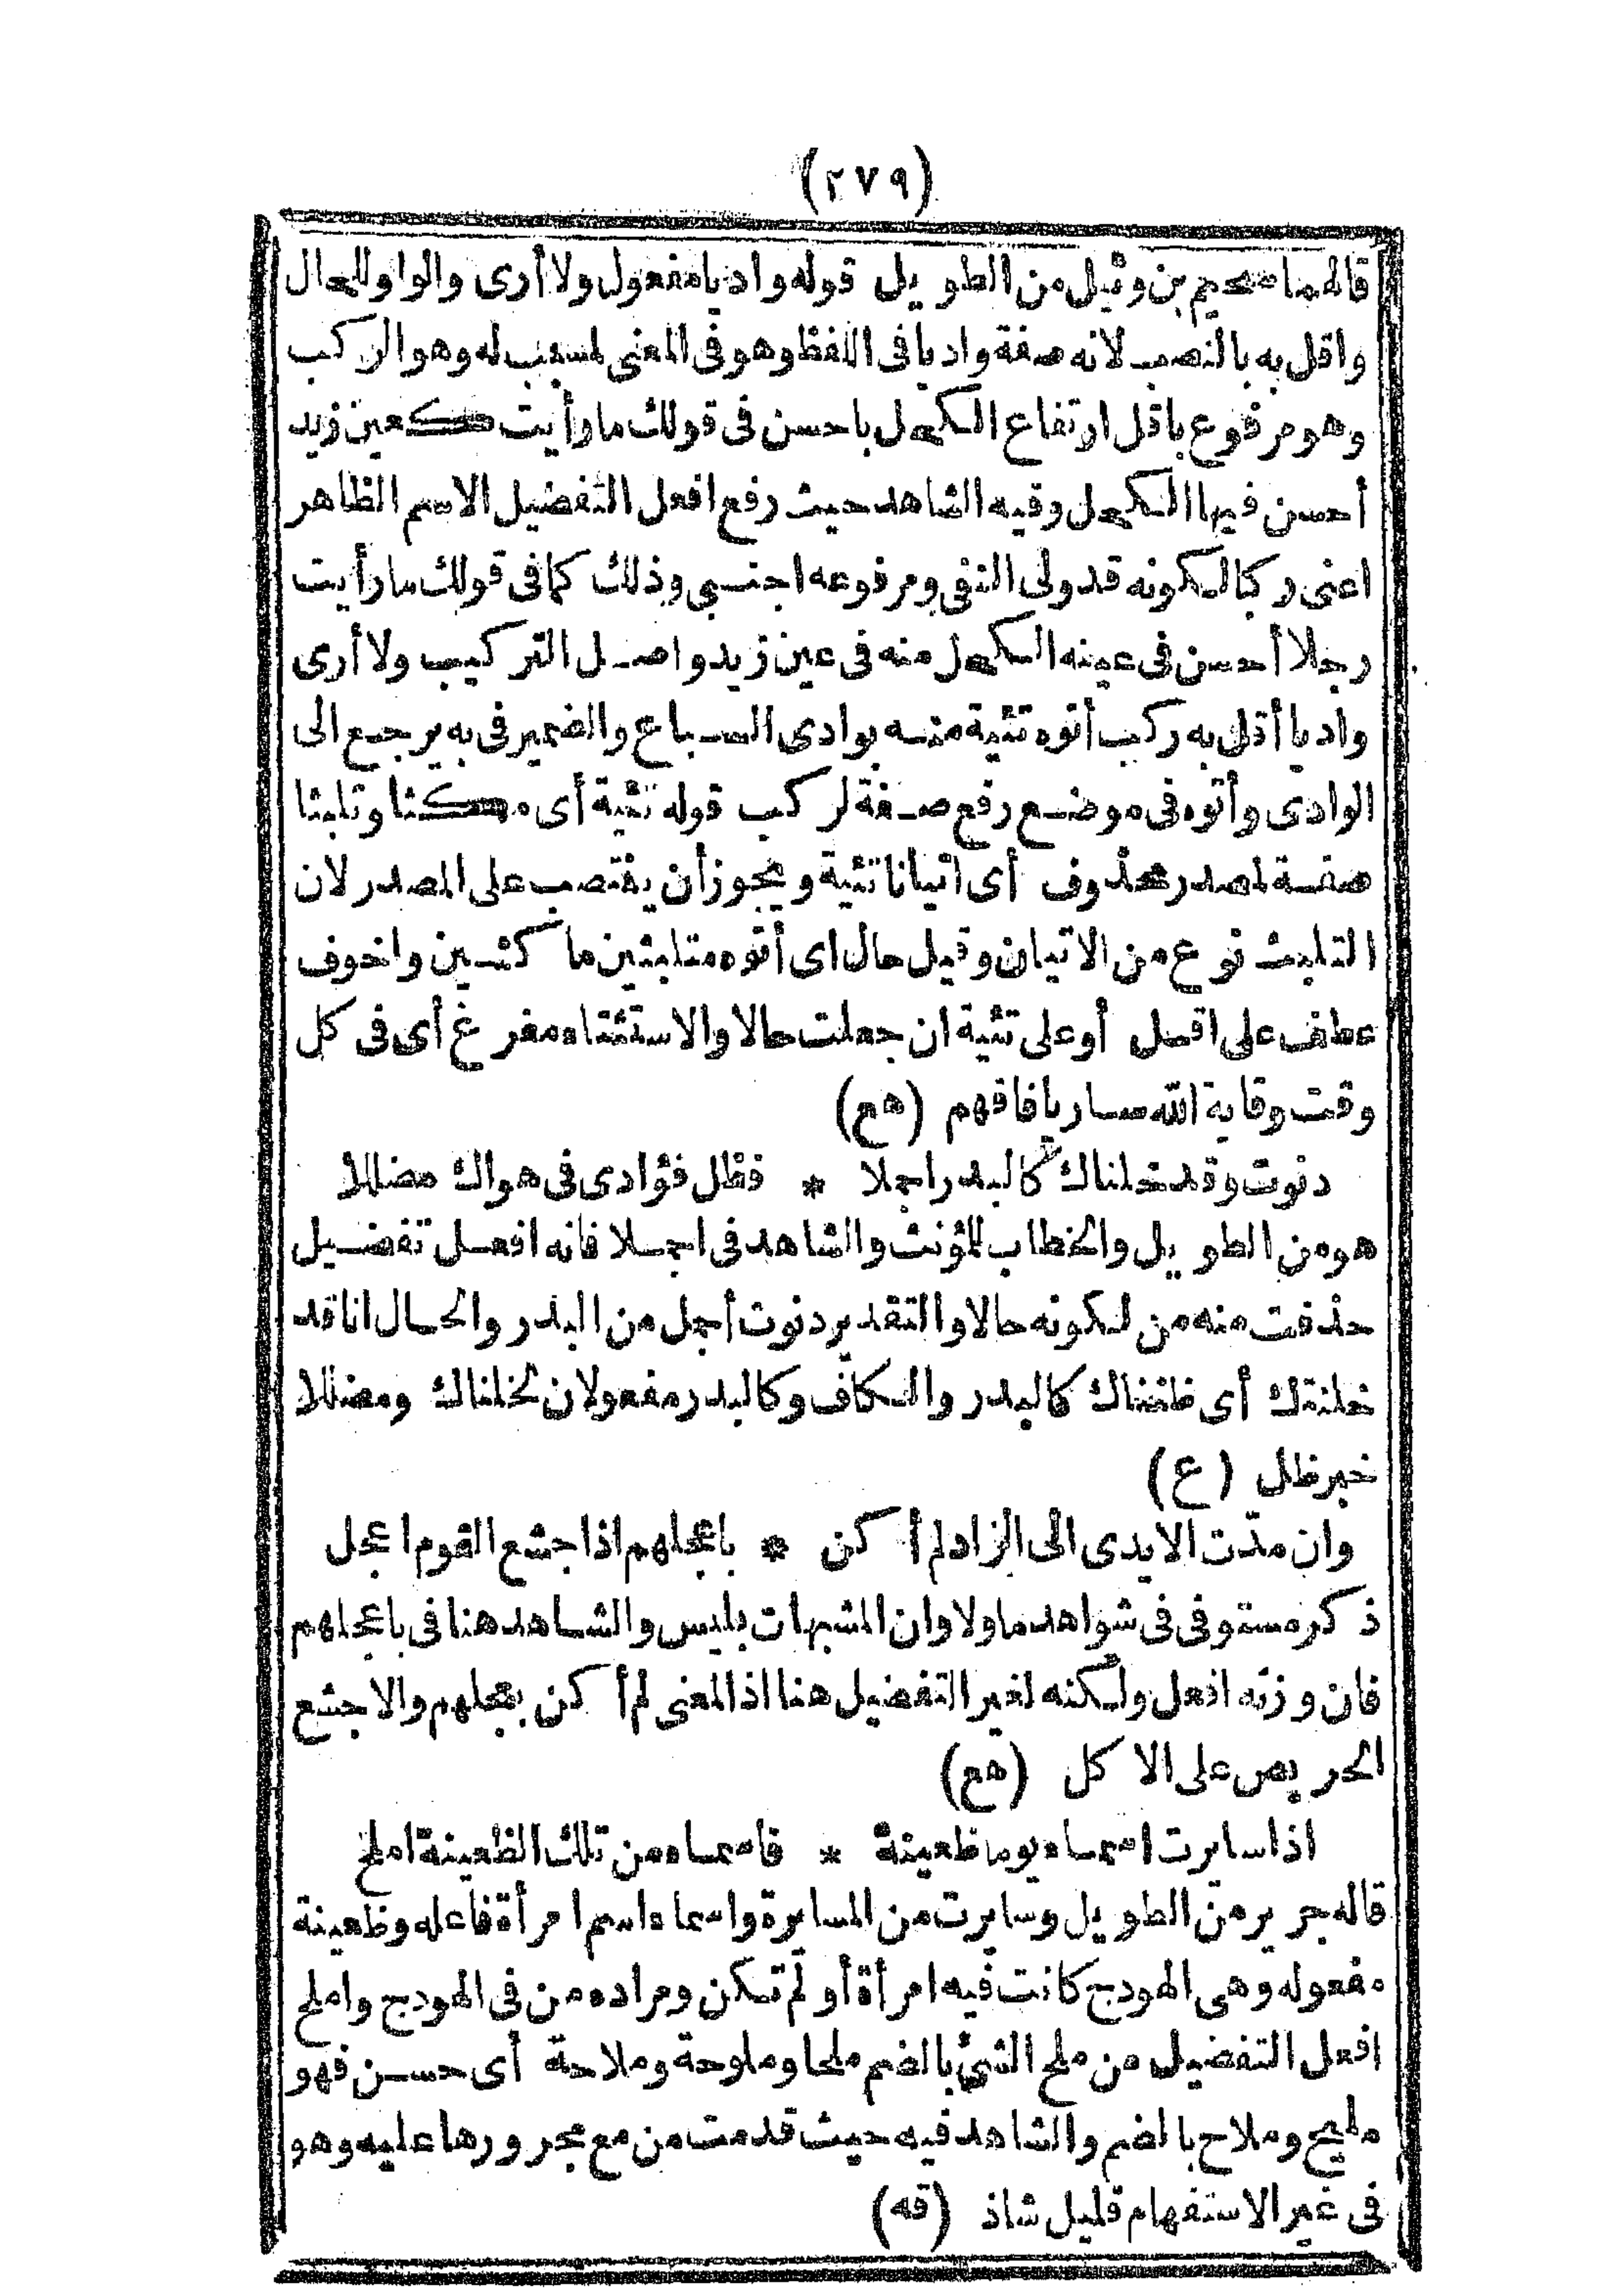 (٢٧٩)
قالهما سحيم بن وثيل من الطويل قوله واديا مفعول ولا أرى والواو للحال
واقل به بالنصب لانه صفة واديا فى اللفظ وهو فى المعنى لمسبب له وهو الركب
وهو مرفوع باقل ارتفاع الكحل باحسن فى قولك ما رأيت كعين زيد
أحسن فيها الكحل وفيه الشاهد حيث رفع افعل التفضيل الاسم الظاهر
اعنى ركبا لكونه قد ولى النفى ومرفوعه اجنبى وذلك كما فى قولك ما رأيت
رجلا أحسن فى عينه الكحل منه فى عين زيد واصل التركيب ولا أرى
واديا أقل به ركب أتوه تئية منه بوادى السباع والضمير فى به يرجع الى
الوادى وأتوه فى موضع رفع صفة لركب قوله تئية أى مكثا وتلبثا
صفة لمصدر محذوف أى اتيانا تئية ويجوز أن ينتصب على المصدر لان
التلبث نوع من الاتيان وقيل حال اى أتوه متلبثين ماكثين واخوف
عطف على اقل أو على تئية ان جعلت حالا والاستثناء مفرغ أى فى كل
وقت وقاية الله ساريا فافهم (هع)
دنوت وقد خلناك كالبدر اجملا * فظل فؤادى فى هواك مضللا
هو من الطويل والخطاب للمؤنث والشاهد فى اجملا فانه افعل تفضيل
حذفت منه من لكونه حالا والتقدير دنوت أجمل من البدر والحال انا قد
خلنتك أى ظنناك كالبدر والكاف وكالبدر مفعولان لخلناك ومضللا
خبر ظل (ع)
وان مدّت الايدى الى الزاد لم أكن * باعجلهم اذا جشع القوم اعجل
ذكر مستوفى فى شواهد ما ولا وان المشبهات بليس والشاهد هنا فى باعجلهم
فان وزنه افعل ولكنه لغير التفضيل هنا اذ المعنى لم أكن بعجلهم والاجشع
الحريص على الاكل (هع)
اذا سايرت اسماء يوما ظعينة * فاسماء من تلك الظعينة املح
قاله جرير من الطويل وسايرت من المسايرة واسماء اسم امرأة فاعله وظعينة
مفعوله وهى الهودج كانت فيه امرأة أو لم تكن ومراده من فى الهودج واملح
افعل التفضيل من ملح الشئ بالضم ملحا وملوحة وملاحة أى حسن فهو
مليح وملاح بالضم والشاهد فيه حيث قدمت من مع مجرورها عليه وهو
فى غير الاستفهام قليل شاذ (قه)